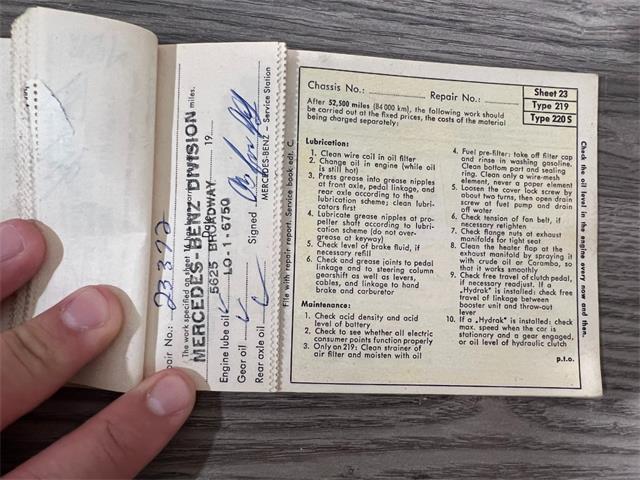 Chassis No.: Repair No.:
Sheet 23
Type 219
Type 220 S
After 52,500 miles (84 000 km), the following work should
be carried out at the fixed prices, the costs of the material
being charged separately:
Lubrication:
1. Clean wire coil in oil filter
2. Change oil in engine (while oil
is still hot)
3. Press grease into grease nipples
at front axle, pedal linkage, and
rear axle according to the
lubrication scheme; clean lubri-
cators first
4. Lubricate grease nipples at pro-
peller shaft according to lubri-
cation scheme (do not over-
grease at keyway)
5. Check level of brake fluid, if
necessary refill
6. Check and grease joints to pedal
linkage and to steering column
gearshift as well as levers,
cables, and linkage to hand
brake and carburetor
Maintenance:
1. Check acid density and acid
level of battery
2. Check to see whether all electric
consumer points function properly
3. Only on 219: Clean strainer of
air filter and moisten with oil
4. Fuel pre-filter: take off filter cap
and rinse in washing gasoline.
Clean bottom part and sealing
ring. Clean only a wire-mesh
element, never a paper element
5. Loosen the cover lock screw by
about two turns, then open drain
screw at fuel pump and drain
off water
6. Check tension of fan belt, if
necessary retighten
7. Check flange nuts at exhaust
manifolds for tight seat
8. Clean the heater flap at the
exhaust manifold by spraying it
with crude oil or Caramba, so
that it works smoothly
9. Check free travel of clutch pedal,
if necessary readjust. If a
„Hydrak" is installed: check free
travel of linkage between
booster unit and throw-out
lever
10. If a „Hydrak" is installed: check
max. speed when the car is
stationary and a gear engaged,
or oil level of hydraulic clutch
p.t.o.
Check the oil level in the engine every now and then.
File with repair report. Service book edt. C.
pair No.: 23392
The work specified on sheet 16
miles.
MERCEDES-BENZ DIVISION
Date 19
5625 BROADWAY
LO-1-6750
Engine lube oil
Gear oil
Rear axle oil
Signed
MERCEDES-BENZ – Service Station